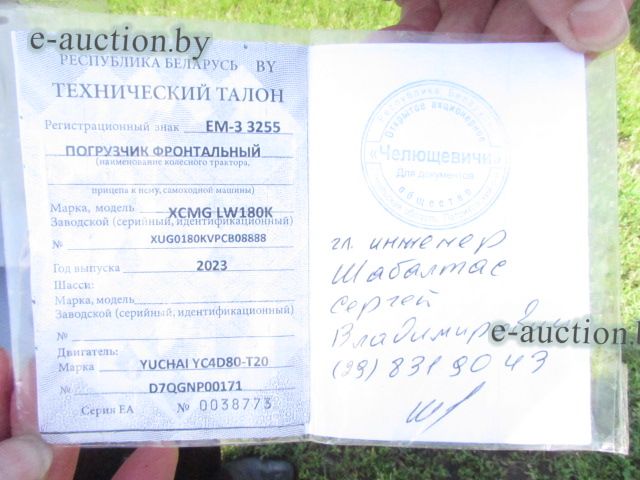 e-auction.by
РЕСПУБЛИКА БЕЛАРУСЬ BY
ТЕХНИЧЕСКИЙ ТАЛОН
Регистрационный знак ЕМ-3 3255
ПОГРУЗЧИК ФРОНТАЛЬНЫЙ
(наименование колесного трактора,
прицепа к нему, самоходной машины)
Марка, модель XCMG LW180K
Заводской (серийный, идентификационный)
№ XUG0180KVPCB08888
Год выпуска 2023
Шасси:
Марка, модель
Заводской (серийный, идентификационный)
№
Двигатель:
Марка YUCHAI YC4D80-T20
№ D7QGNP00171
Серия ЕА № 0038773
Республика Беларусь
Открытое акционерное
«Челющевичи»
Для документов
общество
гл. инженер
Шабалтас
Сергей
e-auction.by
(29) 831 90 43